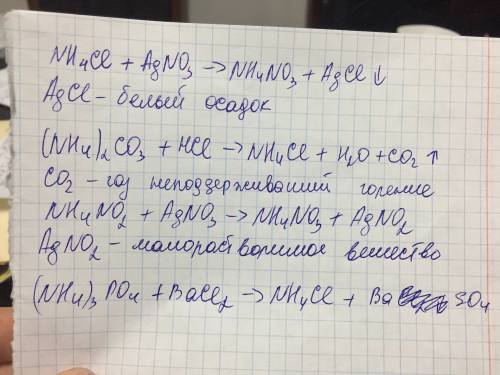 NH4Cl + AgNO3 → NH4NO3 + AgCl ↓
AgCl – белый осадок
(NH4)2CO3 + HCl → NH4Cl + H2O + CO2 ↑
CO2 – газ неподдерживаший горение
NH4NO2 + AgNO3 → NH4NO3 + AgNO2
AgNO2 – малорастворимое вещество
(NH4)3PO4 + BaCl2 → NH4Cl + Ba SO4